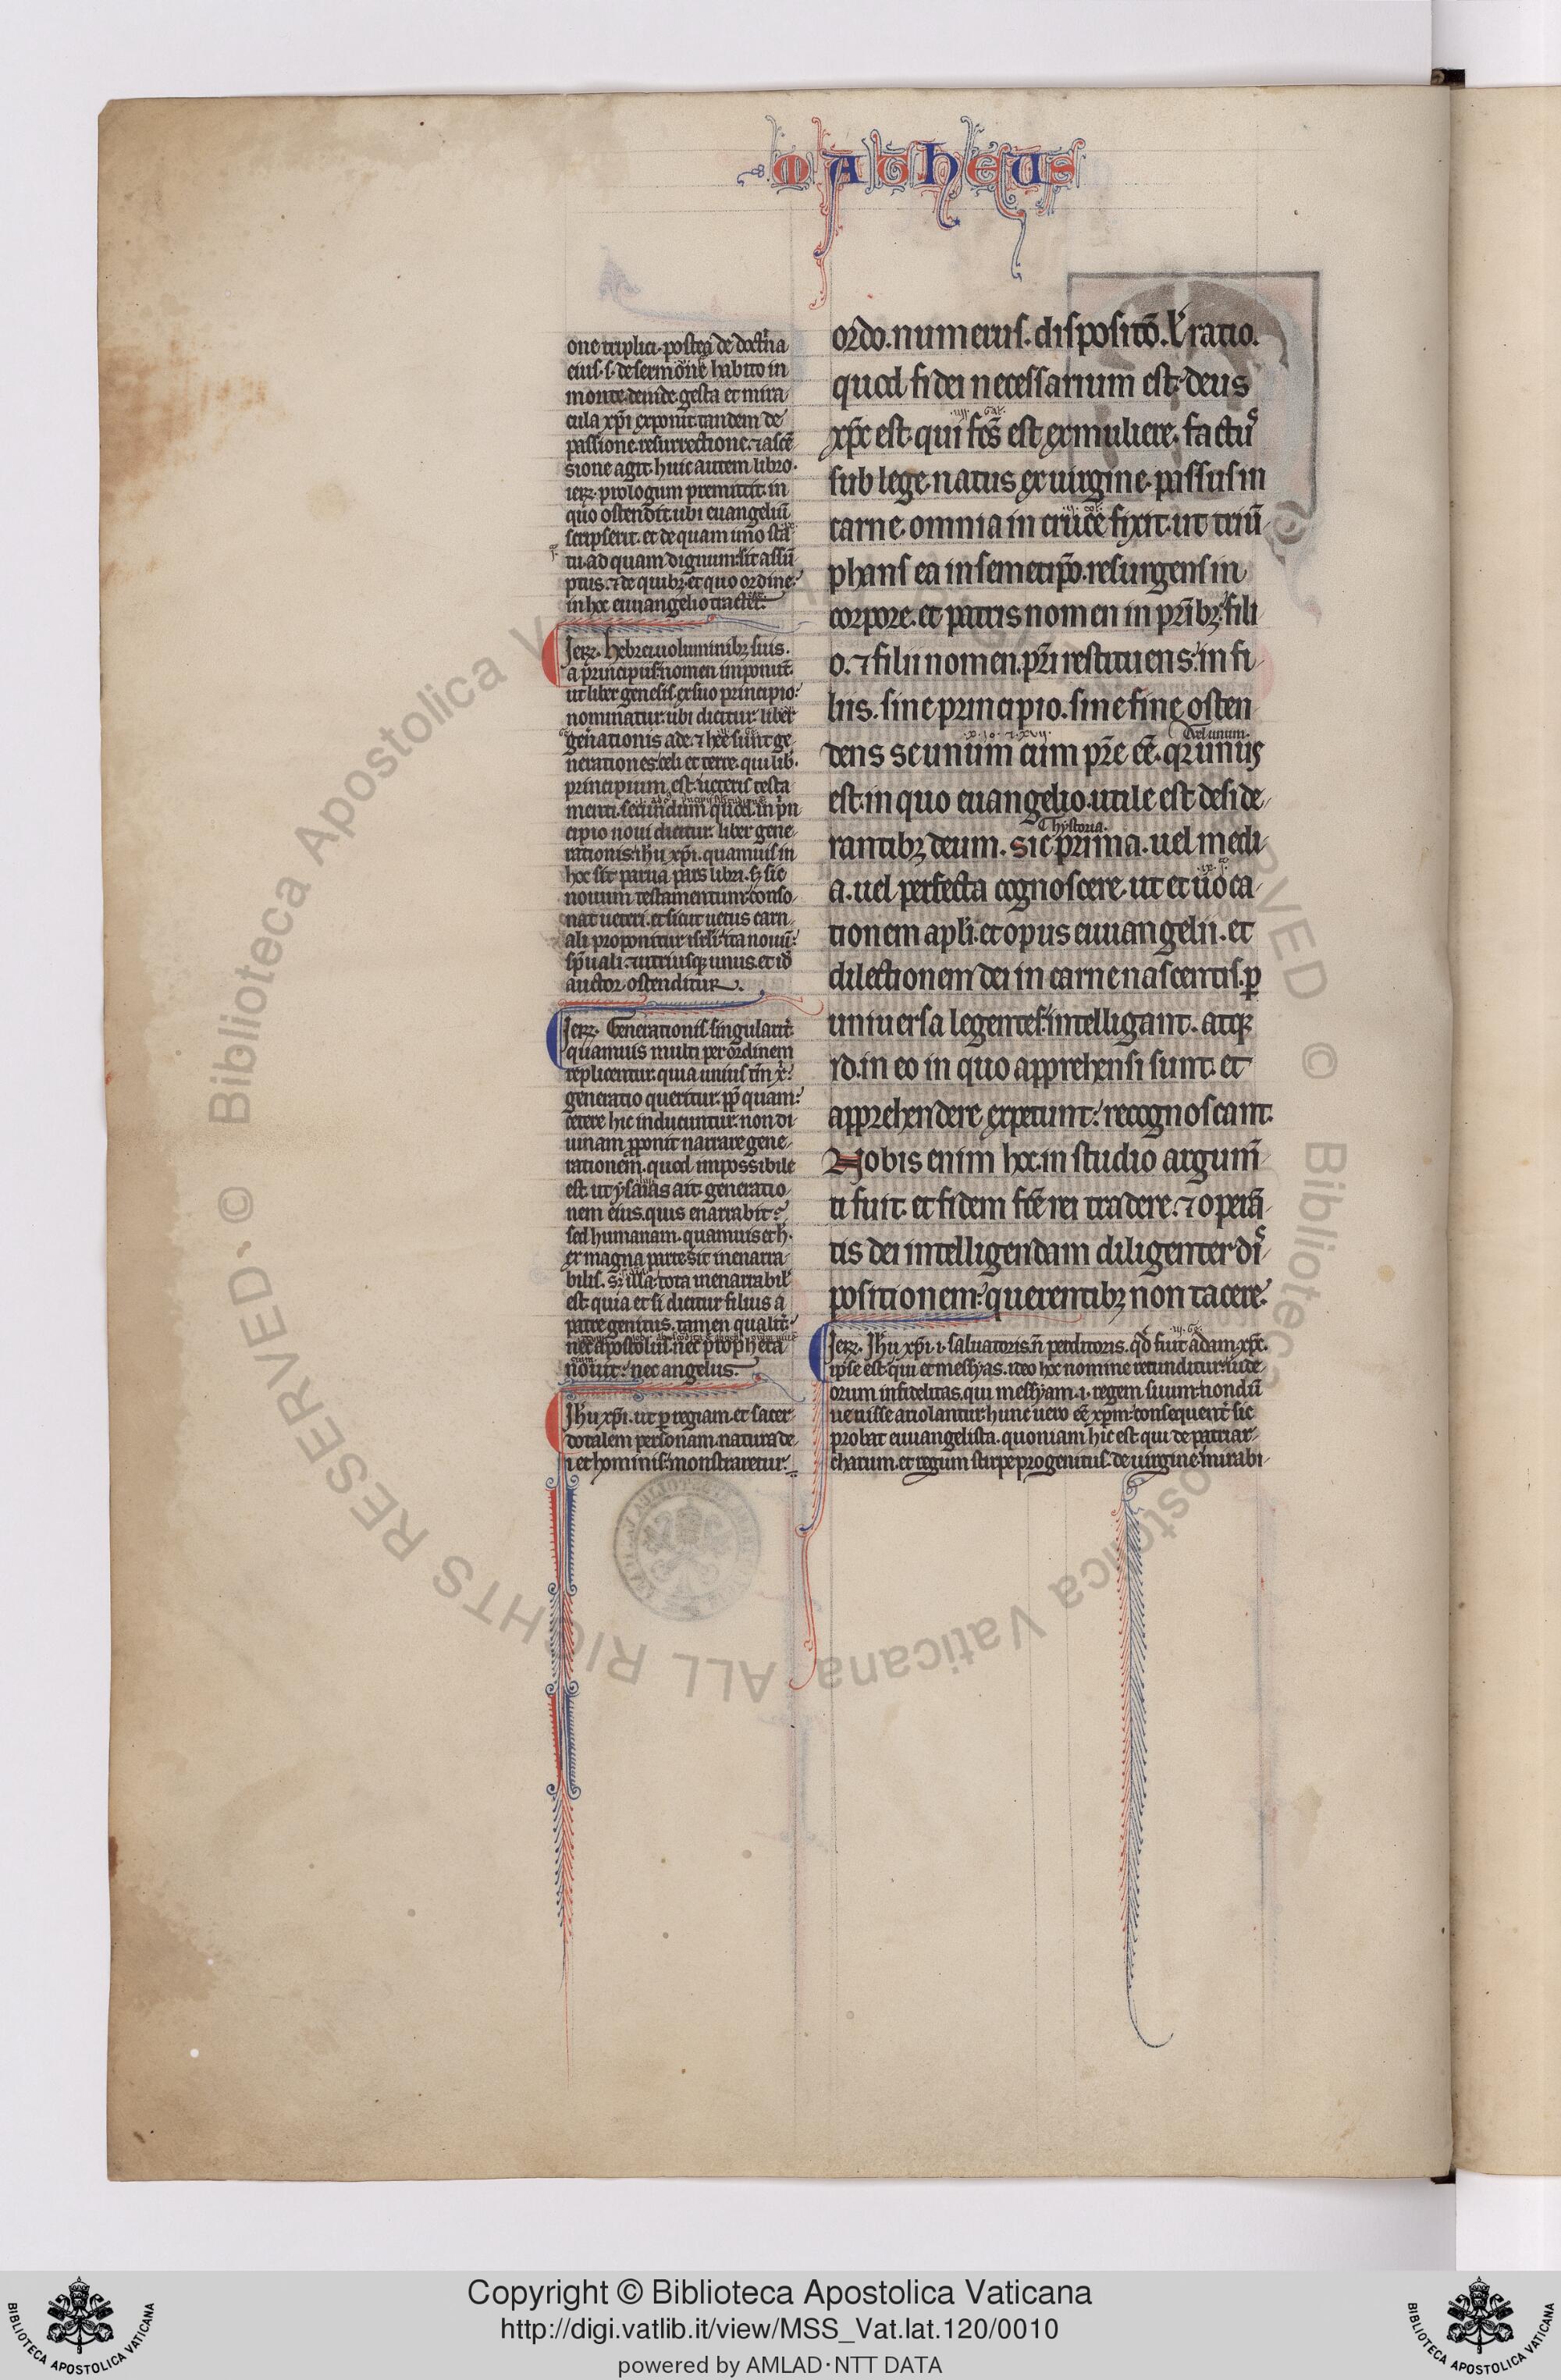 MATHEUS
one triplici. postea de doctͥna
eius. s. de sermone habito in
monte. deinde gesta et mira
cula xp̄i exponit. tandem de
passione. resurrectione. ⁊ ascē
sione agit. huic autem libro.
ierꝫ. prologum premittit. in
quo ostendit. ubi euangeliū
scripserit. et de quam imo sta
tu. ad quam dignum. sit assū
ptus. ⁊ de quibꝫ et quo ordine.
in hoc euuangelio tractet.
Ierꝫ. Hebrei uoluminibꝫ suis.
a principiis nomen imponūt.
ut liber genesis. ex suo principio.
nominatur. ubi dicitur. liber
generationis ade. ⁊ hee sunt ge
nerationes. celi et terre. qui lib.
principium est. ueteris testa
menti. secundum quod. in prin
cipio noui dicitur. liber gene
rationis. ihū xp̄i. quamuis in
hoc sit parua pars libri. sꝫ sic
nouum testamentum. conso
nat ueteri. et sicut uetus carn
ali proponitur isrl̄i. ita nouū.
sp̄uali. ⁊ utriusqꝫ unus. et idē
auctor ostenditur.
Ierꝫ. Generationis. singularit̄.
quamuis multi per ordinem
replicentur. quia unius tn̄ x̄.
generatio queritur. pp̄ quam.
cetere hic inducuntur. non di
uinam proponit narrare gene
rationem. quod impossibile
est. ut ysaias ait. generatio
nem eius. quis enarrabit?
sed humanam. quamuis et h.
ex magna parte sit inenarra
bilis. sꝫ illa. tota inenarrabil̄
est. quia et si dicitur filius a
patre genitus. tamen qualit̄.
nec apostolus. nec propheta
nouit. nec angelus.
Ihū xp̄i. ut per regiam. et sacer
dotalem personam. natura de
i et hominis. monstraretur.
ordo. numerus. dispositō. ul̄ ratio.
quod fidei necessarium est. deus
xp̄c est. qui fc̄s est ex muliere. factus
iiii. Gal.
sub lege. natus ex uirgine. passus in
carne. omnia in cruce fixit. ut triū
phans ea in semetip̄o. resurgens in
corpore. et patris nomen in prībꝫ. fili
o. ⁊ filii nomen. pr̄i restituens. in fi
liis. sine principio. sine fine osten
dens se unum cum pr̄e ee̅. qꝛ unus
x. io. ⁊ xvii.
uel unum.
est. in quo euangelio. utile est deside
rantibꝫ deum. sic prima. uel medi
hystoria.
a. uel perfecta cognoscere. ut et uoca
tionem apl̄i. et opus euuangelii. et
dilectionem dei in carne nascentis. ꝑ
uniuersa legentes. intelligant. atqꝫ
id. in eo in quo apprehensi sunt. et
apprehendere expetunt. recognoscant.
Nobis enim hoc. in studio argum̄
ti fuit. et fidem fc̄e rei tradere. ⁊ operā
tis dei intelligendam diligenter dis
positionem. querentibꝫ non tacere.
Ierꝫ. Ihū xp̄i. i. saluatoris. n̄ perditoris. qd̄ fuit adam. xp̄c.
ipse est. qui et messyas. ideo hoc nomine retunditur. iude
orum infidelitas. qui messyam. i. regem suum. nondū
uenisse ariolantur. hunc uero ee̅ xp̄m. consequent̄ sic
probat euuangelista. quoniam hic est qui de patriar
charum. et regum stirpe progenitus. de uirgine. mirabi
© Biblioteca Apostolica Vaticana ALL RIGHTS RESERVED
Copyright © Biblioteca Apostolica Vaticana
http://digi.vatlib.it/view/MSS_Vat.lat.120/0010
powered by AMLAD·NTT DATA
BIBLIOTECA APOSTOLICA VATICANA
BIBLIOTECA APOSTOLICA VATICANA